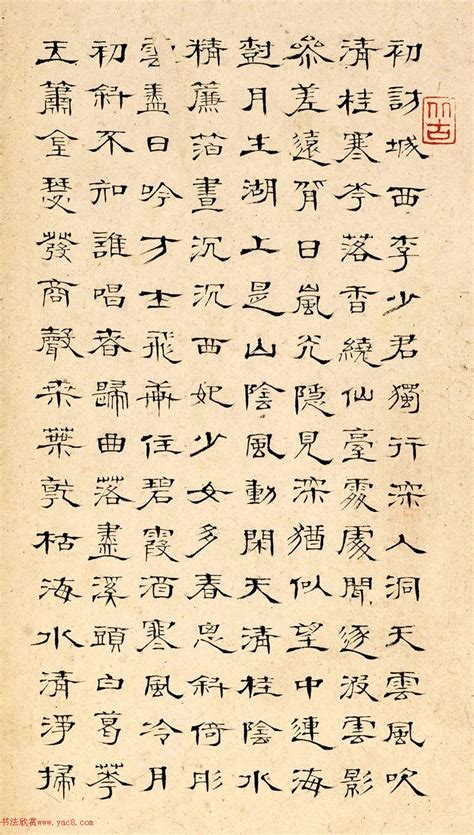 初訪城西李少君獨行深入洞天雲風吹
清桂寒花落香繞仙臺處處聞逐汲雲影
參差遠背日嵐光隱見深猶似望中連海
樹月生湖上是山陰風動閑天清桂陰水
精簾箔晝沉沉西妃少女多春思斜倚彤
雲盡日吟方士飛軒住碧霞酒寒風冷月
初斜不知誰唱春歸曲落盡溪頭白葛花
玉簫金瑟發商聲桑葉乾枯海水清淨掃
书法欣赏www.yac8.com